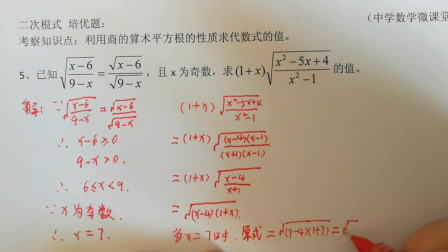 二次根式 培优题:
（中学数学微课堂
考察知识点：利用商的算术平方根的性质求代数式的值。
5、已知√((x-6)/(9-x)) = √(x-6)/√(9-x)，且 x 为奇数，求(1+x)√((x²-5x+4)/(x²-1))的值。
解：∵ √((x-6)/(9-x)) = √(x-6)/√(9-x)
∴ x-6≥0
9-x>0.
∴ 6≤x<9.
∵ x为奇数.
∴ x=7.
(1+x)√((x²-5x+4)/(x²-1))
=(1+x)√((x-4)(x-1)/(x+1)(x-1))
=(1+x)√((x-4)/(x+1))
=√((x-4)(1+x)).
当x=7时. 原式=√((7-4)(1+7))=√